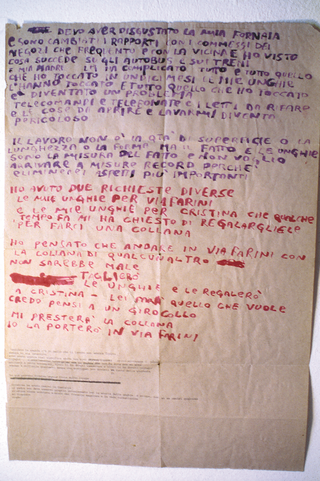 DEVO AVER DISGUSTATO LA MIA FORNAIA
E SONO CAMBIATI I RAPPORTI CON I COMMESSI DEI
NEGOZI CHE FREQUENTO E CON LA VICINA E HO VISTO
COSA SUCCEDE SUGLI AUTOBUS E SUI TRENI
MIA MADRE HA COMPLICATO TUTTO E TUTTO QUELLO
CHE HO TOCCATO IN UNDICI MESI LE MIE UNGHIE
L'HANNO TOCCATO E TUTTO QUELLO CHE HO TOCCATO
E DIVENTATO UN PROBLEMA
TELECOMANDI E TELEFONATE E I LETTI DA RIFARE
O LE COSE DA APRIRE E LAVARMI DIVENTA
PERICOLOSO
IL LAVORO NON È LA QTÀ DI SUPERFICIE O LA
LUNGHEZZA O LA FORMA MA IL FATTO E LE UNGHIE
SONO LA MISURA DEL FATTO E NON VOGLIO
ARRIVARE A MISURE RECORD POICHÈ
ELIMINEREI ASPETTI PIÙ IMPORTANTI
HO AVUTO DUE RICHIESTE DIVERSE
LE MIE UNGHIE PER VIA FARINI
E LE MIE UNGHIE PER CRISTINA CHE QUALCHE
TEMPO FA MI HA CHIESTO DI REGALARGLIELE
PER FARCI UNA COLLANA
HO PENSATO CHE ANDARE IN VIA FARINI CON
LA COLLANA DI QUALCUN ALTRO
NON SAREBBE MALE
TAGLIERÒ
LE UNGHIE E LE REGALERÒ
A CRISTINA - LEI FARÀ QUELLO CHE VUOLE
CREDO PENSI A UN GIROCOLLO
MI PRESTERÀ LA COLLANA
IO LA PORTERÒ IN VIA FARINI